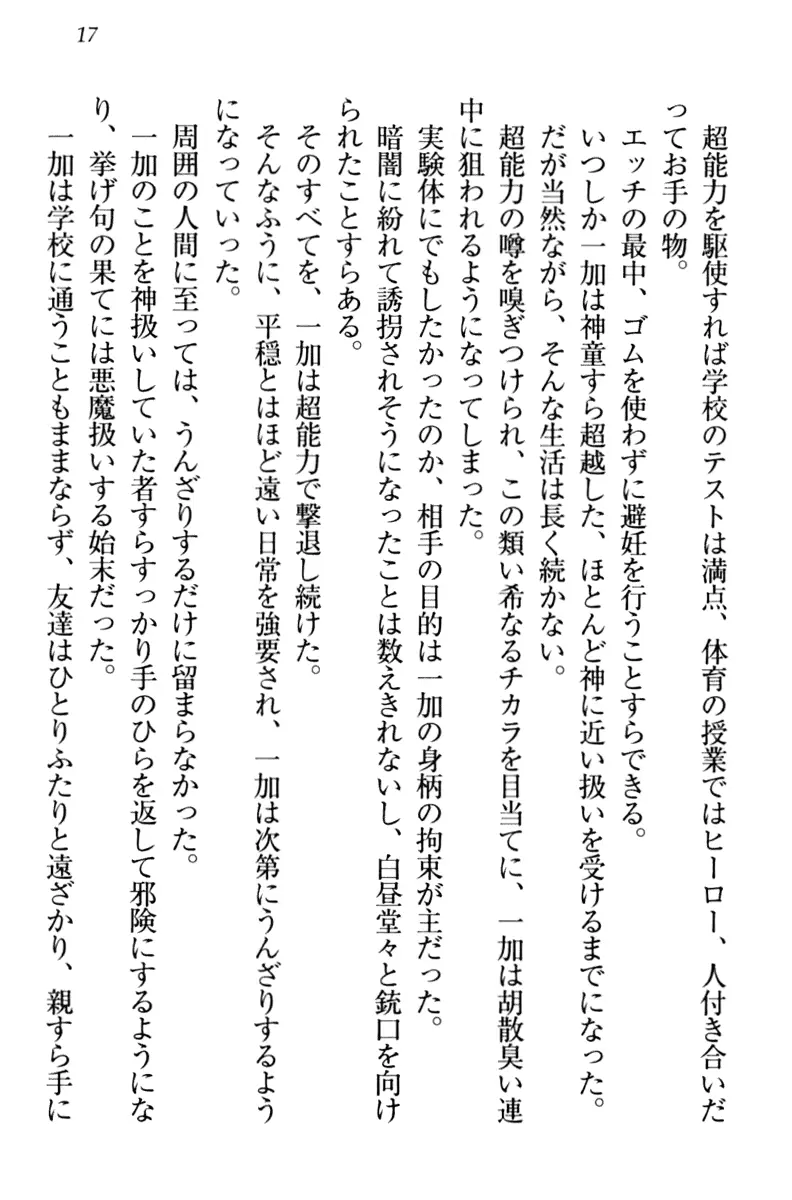 17
超能力を駆使すれば学校のテストは満点、体育の授業ではヒーロー、人付き合いだ
ってお手の物。
エッチの最中、ゴムを使わずに避妊を行うことすらできる。
いつしか一加は神童すら超越した、ほとんど神に近い扱いを受けるまでになった。
だが当然ながら、そんな生活は長く続かない。
超能力の噂を嗅ぎつけられ、この類い希なるチカラを目当てに、一加は胡散臭い連
中に狙われるようになってしまった。
実験体にでもしたかったのか、相手の目的は一加の身柄の拘束が主だった。
暗闇に紛れて誘拐されそうになったことは数えきれないし、白昼堂々と銃口を向け
られたことすらある。
そのすべてを、一加は超能力で撃退し続けた。
そんなふうに、平穏とはほど遠い日常を強要され、一加は次第にうんざりするよう
になっていった。
周囲の人間に至っては、うんざりするだけに留まらなかった。
一加のことを神扱いしていた者すらすっかり手のひらを返して邪険にするようにな
り、挙げ句の果てには悪魔扱いする始末だった。
一加は学校に通うこともままならず、友達はひとりふたりと遠ざかり、親すら手に